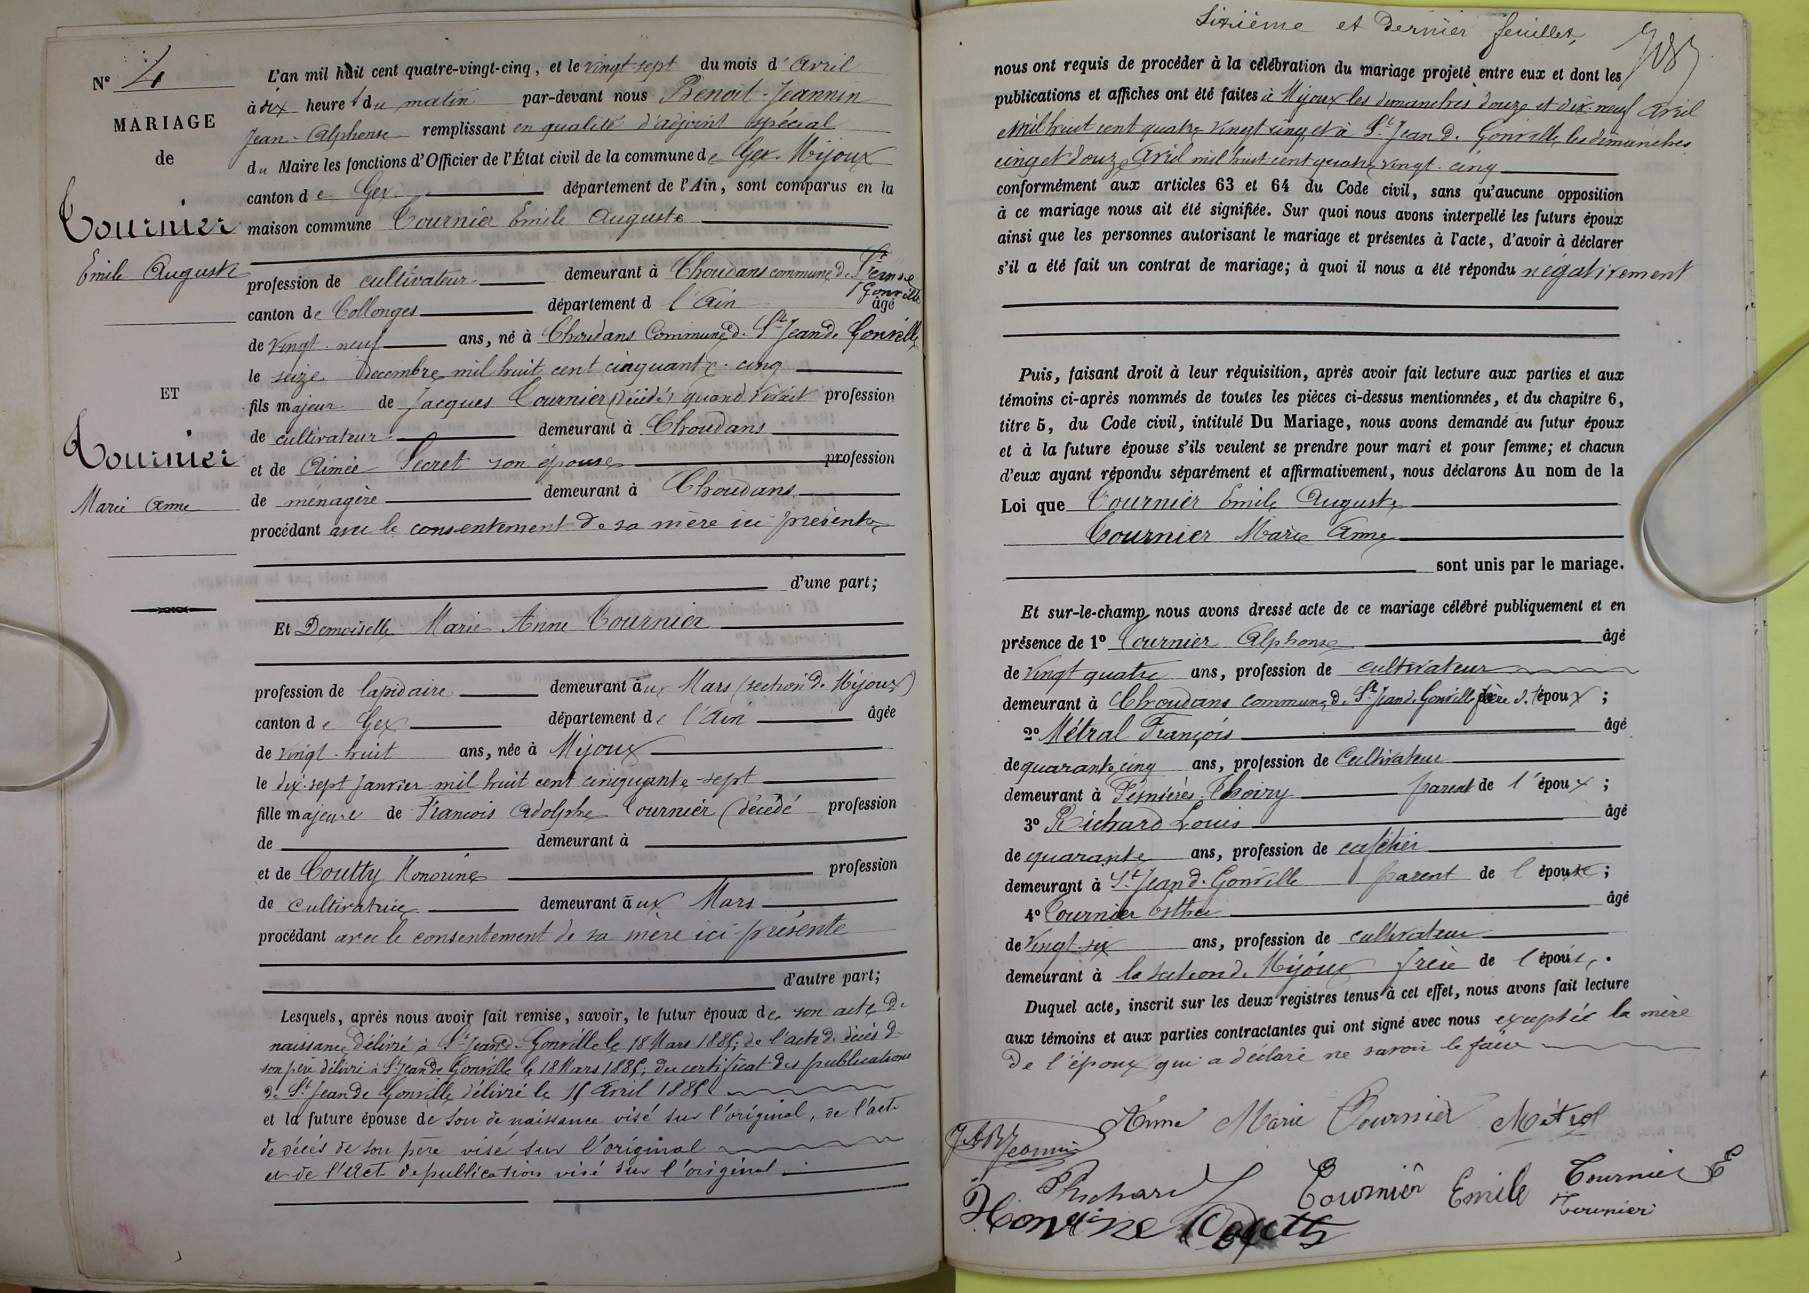 N° 4
MARIAGE
de
Tournier
Emile Auguste
ET
Tournier
Marie Anne
L'an mil huit cent quatre-vingt-cinq, et le vingt-sept du mois d'Avril
à six heures du matin par-devant nous Benoit-Jeannin
Jean-Alphonse remplissant en qualité d'adjoint spécial
du Maire les fonctions d'Officier de l'État civil de la commune de Gex-Mijoux
canton de Gex département de l'Ain, sont comparus en la
maison commune Tournier Emile Auguste
profession de cultivateur demeurant à Choudans commune de St Jean de
Gonville
canton de Collonges département d l'Ain âgé
de vingt-neuf ans, né à Choudans Commune d. St Jean de Gonville
le seize Décembre mil huit cent cinquante-cinq
fils majeur de Jacques Tournier (décédé) quand vivait profession
de cultivateur demeurant à Choudans
et de Aimée Secret son épouse profession
de ménagère demeurant à Choudans
procédant avec le consentement de sa mère ici présente
d'une part;
Et Demoiselle Marie Anne Tournier
profession de lapidaire demeurant aux Mars (section de Mijoux)
canton de Gex département de l'Ain âgée
de vingt-huit ans, née à Mijoux
le dix-sept Janvier mil huit cent cinquante-sept
fille majeure de François Adolphe Tournier (décédé profession
de demeurant à
et de Coutty Honorine profession
de cultivatrice demeurant aux Mars
procédant avec le consentement de sa mère ici présente
d'autre part;
Lesquels, après nous avoir fait remise, savoir, le futur époux de son acte de
naissance délivré à St Jean d. Gonville le 18 Mars 1885; de l'acte de décès d
son père délivré à St Jean de Gonville le 18 Mars 1885; du certificat des publications
de St Jean de Gonville délivré le 15 Avril 1885
et la future épouse de son de naissance visé sur l'original, de l'acte
de décès de son père visé sur l'original
et de l'acte de publication visé sur l'original
Sixième et Dernier feuillet,
nous ont requis de procéder à la célébration du mariage projeté entre eux et dont les
publications et affiches ont été faites à Mijoux les dimanches douze et dix-neuf Avril
mil huit cent quatre vingt cinq et à St Jean d. Gonville les dimanches
cinq et douze Avril mil huit cent quatre vingt-cinq
conformément aux articles 63 et 64 du Code civil, sans qu'aucune opposition
à ce mariage nous ait été signifiée. Sur quoi nous avons interpellé les futurs époux
ainsi que les personnes autorisant le mariage et présentes à l'acte, d'avoir à déclarer
s'il a été fait un contrat de mariage; à quoi il nous a été répondu négativement
Puis, faisant droit à leur réquisition, après avoir fait lecture aux parties et aux
témoins ci-après nommés de toutes les pièces ci-dessus mentionnées, et du chapitre 6,
titre 5, du Code civil, intitulé Du Mariage, nous avons demandé au futur époux
et à la future épouse s'ils veulent se prendre pour mari et pour femme; et chacun
d'eux ayant répondu séparément et affirmativement, nous déclarons Au nom de la
Loi que Tournier Emile Auguste
Tournier Marie Anne
sont unis par le mariage.
Et sur-le-champ nous avons dressé acte de ce mariage célébré publiquement et en
présence de 1° Tournier Alphonse âgé
de vingt quatre ans, profession de cultivateur
demeurant à Choudans commune de St Jean de Gonville frère d. l'époux;
2° Métral François âgé
de quarante cinq ans, profession de Cultivateur
demeurant à Thoiry parent de l'époux;
3° Richard Louis âgé
de quarante ans, profession de cafetier
demeurant à St Jean d. Gonville parent de l'époux;
4° Tournier âgé
de vingt-six ans, profession de cultivateur
demeurant à la section d. Mijoux frère de l'épouse.
Duquel acte, inscrit sur les deux registres tenus à cet effet, nous avons fait lecture
aux témoins et aux parties contractantes qui ont signé avec nous exceptée la mère
de l'époux qui a déclaré ne savoir le faire
Anne Marie Tournier Métral
JABJeannin
Richard L Tournier Emile Tournier
Tournier
Honorine Coutty